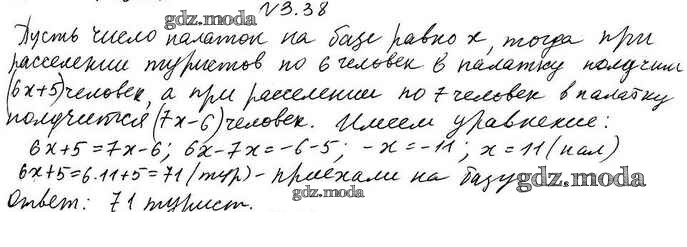 №3.38
gdz.moda
Пусть число палаток на базе равно x, тогда при
расселении туристов по 6 человек в палатку получим
(6x+5) человек, а при расселении по 7 человек в палатку
gdz.moda
получится (7x-6) человек. Имеем уравнение:
6x+5=7x-6; 6x-7x=-6-5; -x=-11; x=11 (пал)
6x+5=6·11+5=71 (тур) - приехали на базу
gdz.moda
gdz.moda
Ответ: 71 турист.